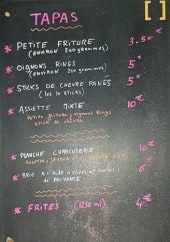 TAPAS
* PETITE FRITURE 3.50 €
(ENVIRON 200 grammes)
* OIGNONS RINGS 5 €
(ENVIRON 200 grammes)
* STICKS DE CHEVRE PANÉS 5 €
(les 10 sticks)
* ASSIETTE MIXTE 10 €
Petite friture, oignons Rings
stick de chèvre
* PLANCHE CHARCUTERIE 10 €
* BRIE A L'AIL
DE PROVENCE
* FRITES 4 €